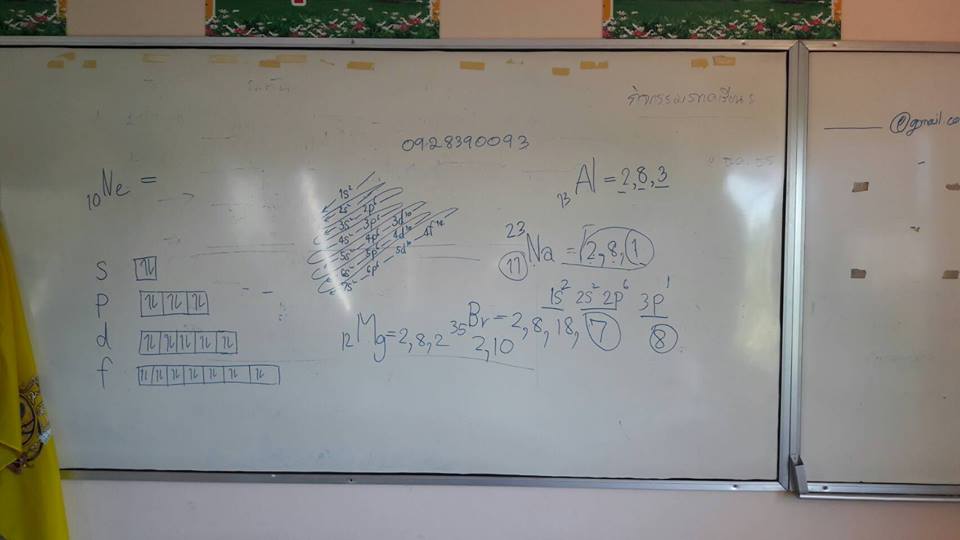 0928390093
@gmail.co
10Ne =
13Al = 2,8,3
1s²
2s² - 2p⁶
3s² - 3p⁶ - 3d¹⁰
4s² - 4p⁶ - 4d¹⁰ - 4f¹⁴
5s² - 5p⁶ - 5d¹⁰
6s² - 6p⁶
7s²
23
11Na = 2,8,1
1s² 2s² 2p⁶ 3p¹
8
12Mg = 2,8,2
35Br = 2,8,18,7
2,10
s
p
d
f